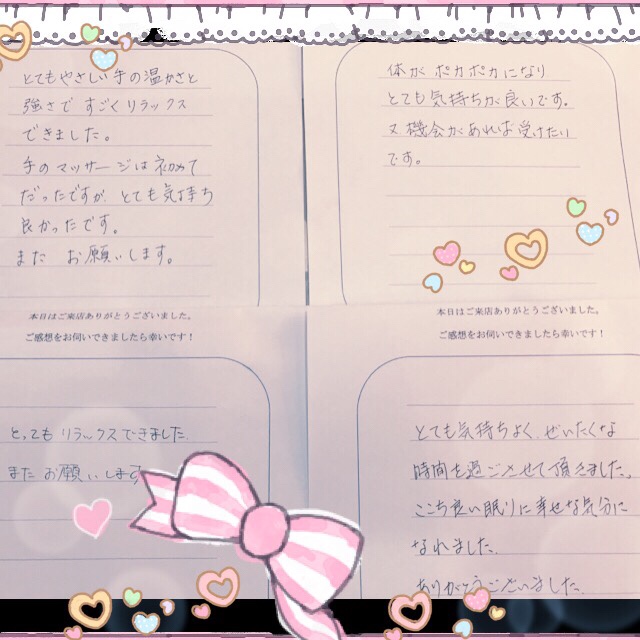 とてもやさしい手の温かさと
強さで すごくリラックス
できました。
手のマッサージは初めて
だったですが、とても気持ち
良かったです。
また お願いします。
体が ポカポカになり
とても気持ちが良いです。
又機会があれば受けたい
です。
本日はご来店ありがとうございました。
ご感想をお伺いできましたら幸いです！
とっても リラックスできました。
また お願いします
本日はご来店ありがとうございました。
ご感想をお伺いできましたら幸いです！
とても気持ちよく、ぜいたくな
時間を過ごさせて頂きました。
ここち良い眠りに幸せな気分に
なれました。
ありがとうございました。